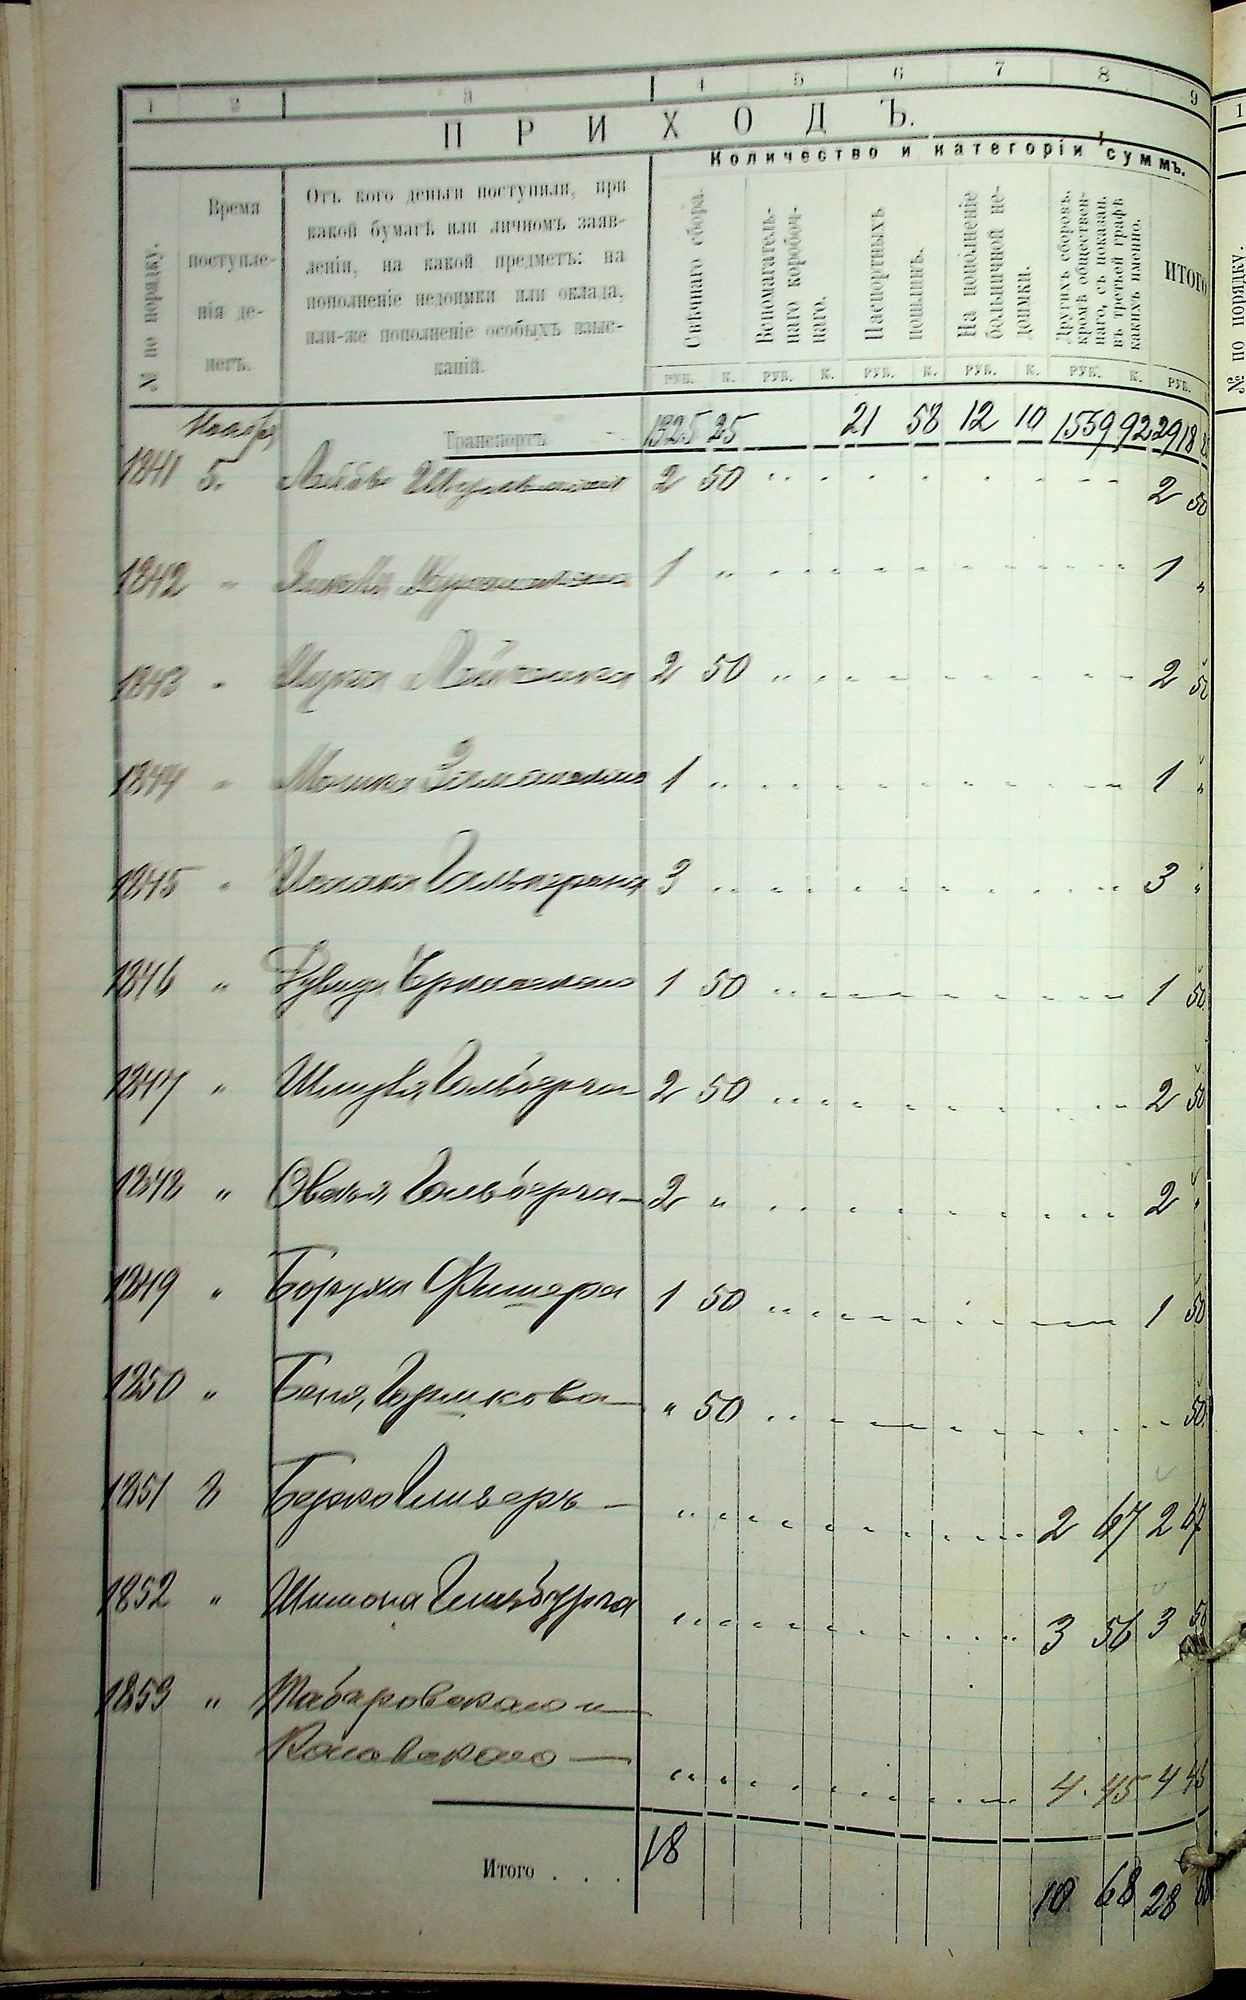 1 2 3 4 5 6 7 8 9
ПРИХОДЪ.
Количество и категоріи суммъ.
№ по порядку.
Время поступле-
нія де-
негъ.
Отъ кого деньги поступили, при
какой бумагѣ или личномъ заяв-
леніи, на какой предметъ: на
пополненіе недоимки или оклада,
или-же пополненіе особыхъ взыс-
каній.
Свѣчнаго сбора.
Вспомагатель-
наго коробоч-
наго.
Паспортныхъ
пошлинъ.
На пополненіе
больничной не-
доимки.
Другихъ сборовъ,
кромѣ обществен-
наго, съ показан.
въ третьей графѣ
какихъ именно.
ИТОГО
РУБ. К. РУБ. К. РУБ. К. РУБ. К. РУБ. К. РУБ.
Ноября
Транспортъ 1325 25 21 58 12 10 1559 92 2918
1841 5. 2 50 2 50
1842 " 1 " 1 "
1843 " 2 50 2 50
1844 " Мошка 1 " 1 "
1845 " Исаака Гальперина 3 " 3 "
1846 " 1 50 1 50
1847 " Шмуля Гольберга 2 50 2 50
1848 " Овсея Гольберга 2 " 2 "
1849 " Боруха Фишера 1 50 1 50
1850 " Горшкова " 50 50
1851 8 Берко 2 67 2 67
1852 " Шимона Гинзбурга 3 56 3 56
1853 " Таборовскаго и
Косовскаго 4 45 4 45
Итого . . . 18 10 68 28 68
1
№ по порядку.